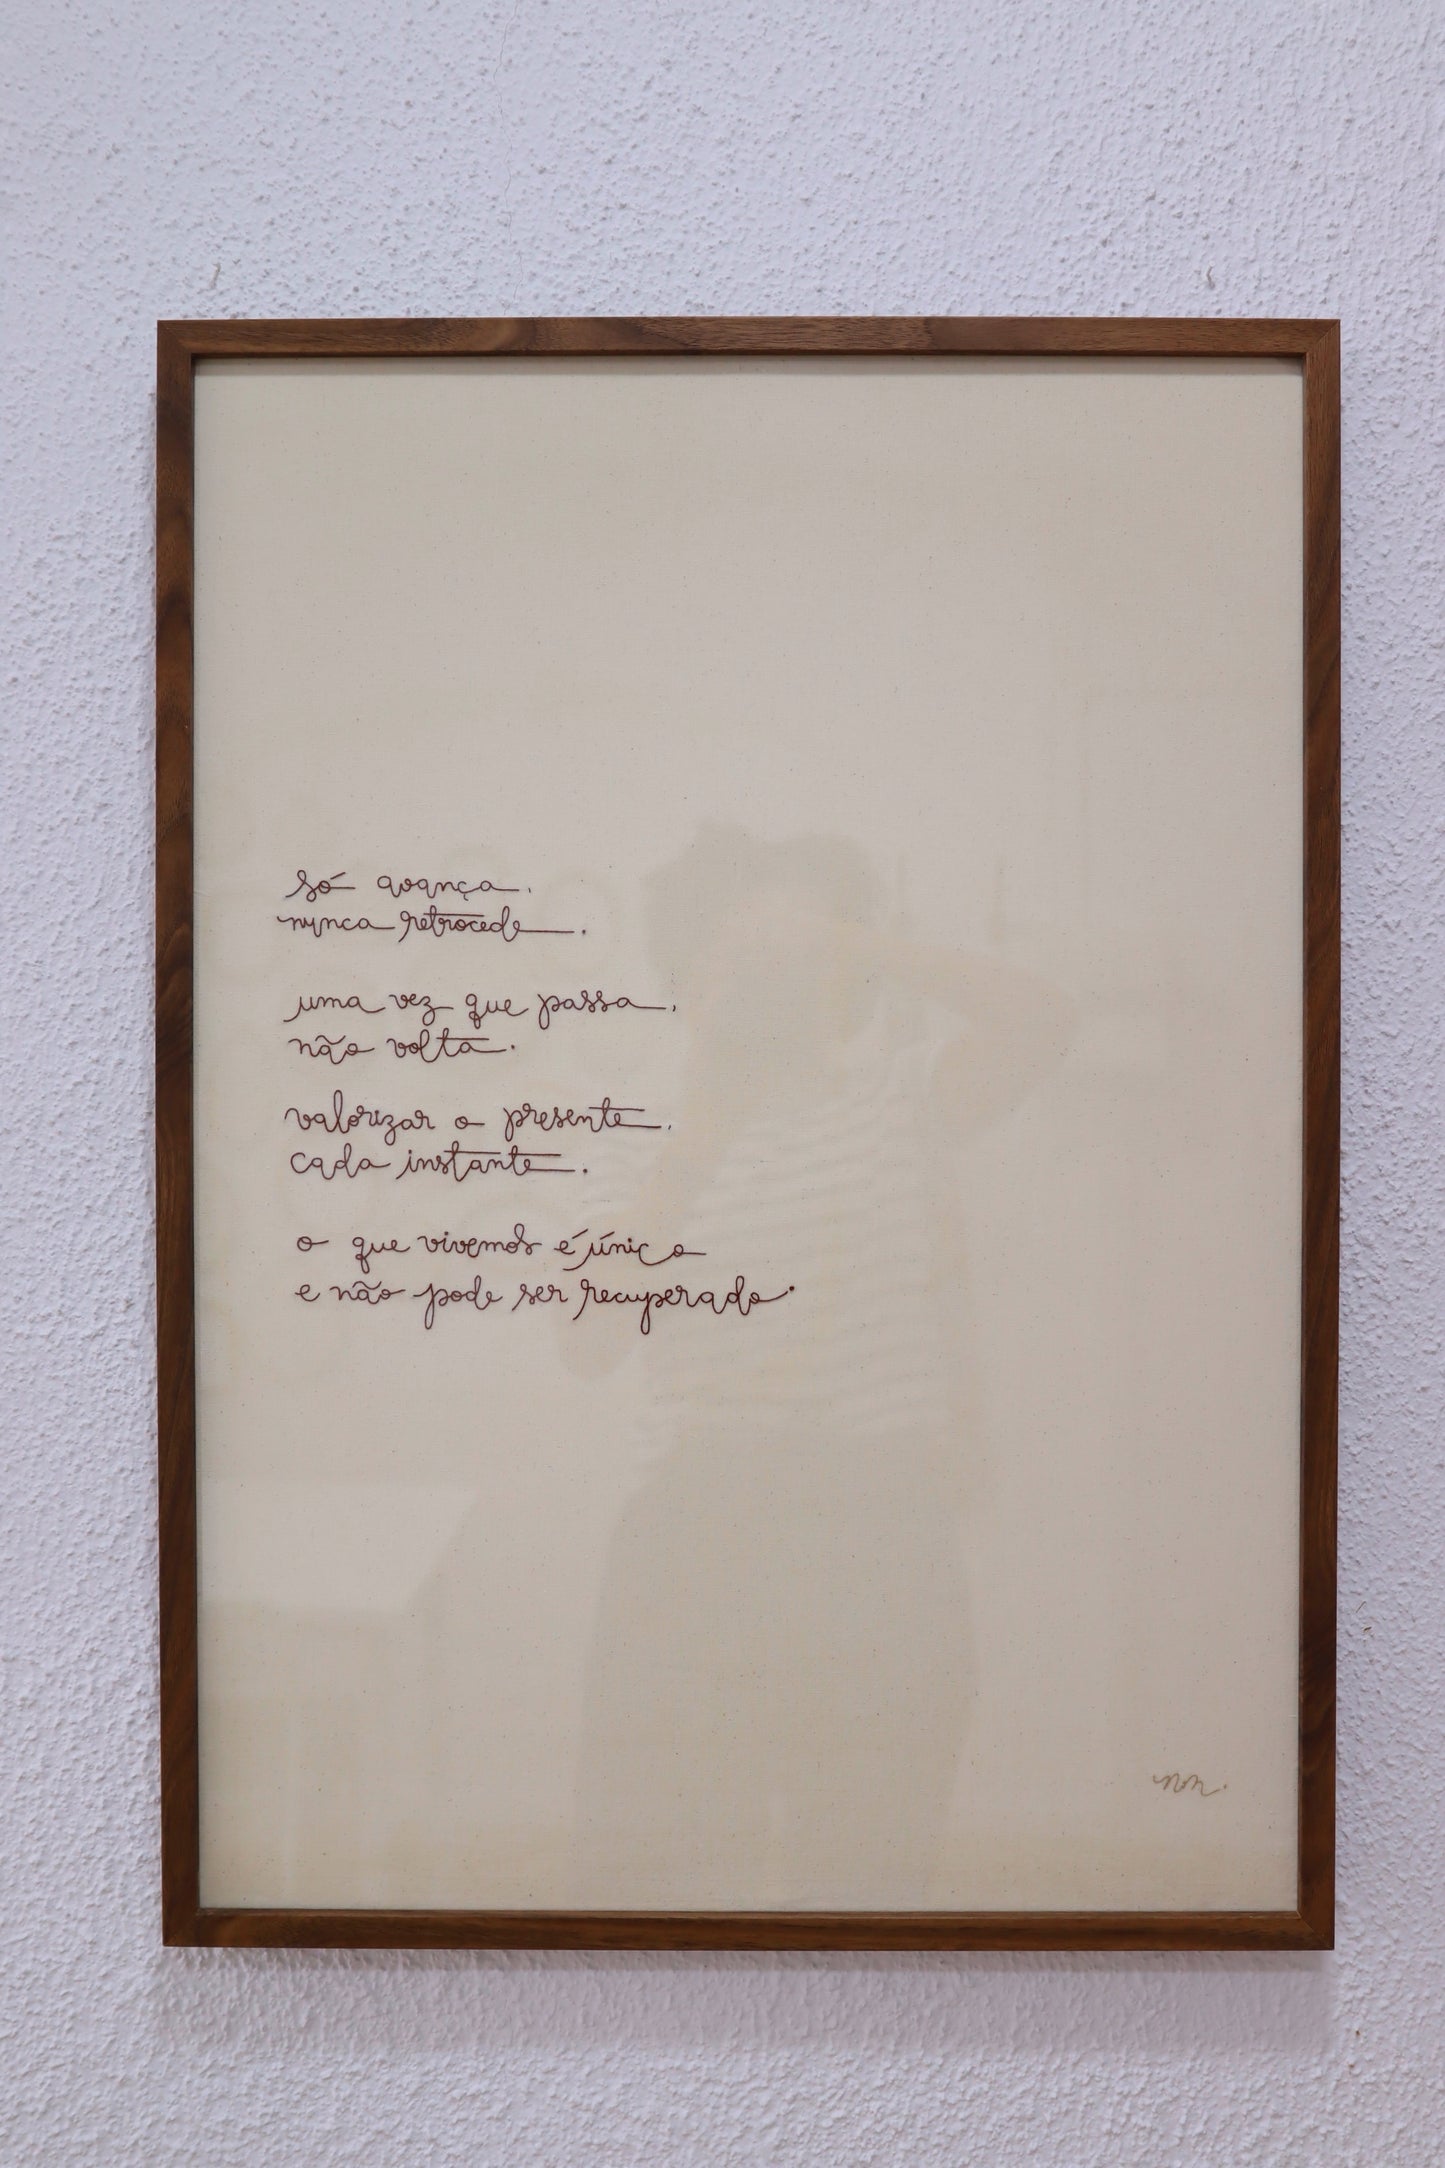 só avança,
nunca retrocede.
uma vez que passa,
não volta.
valorizar o presente,
cada instante.
o que vivemos é único
e não pode ser recuperado.